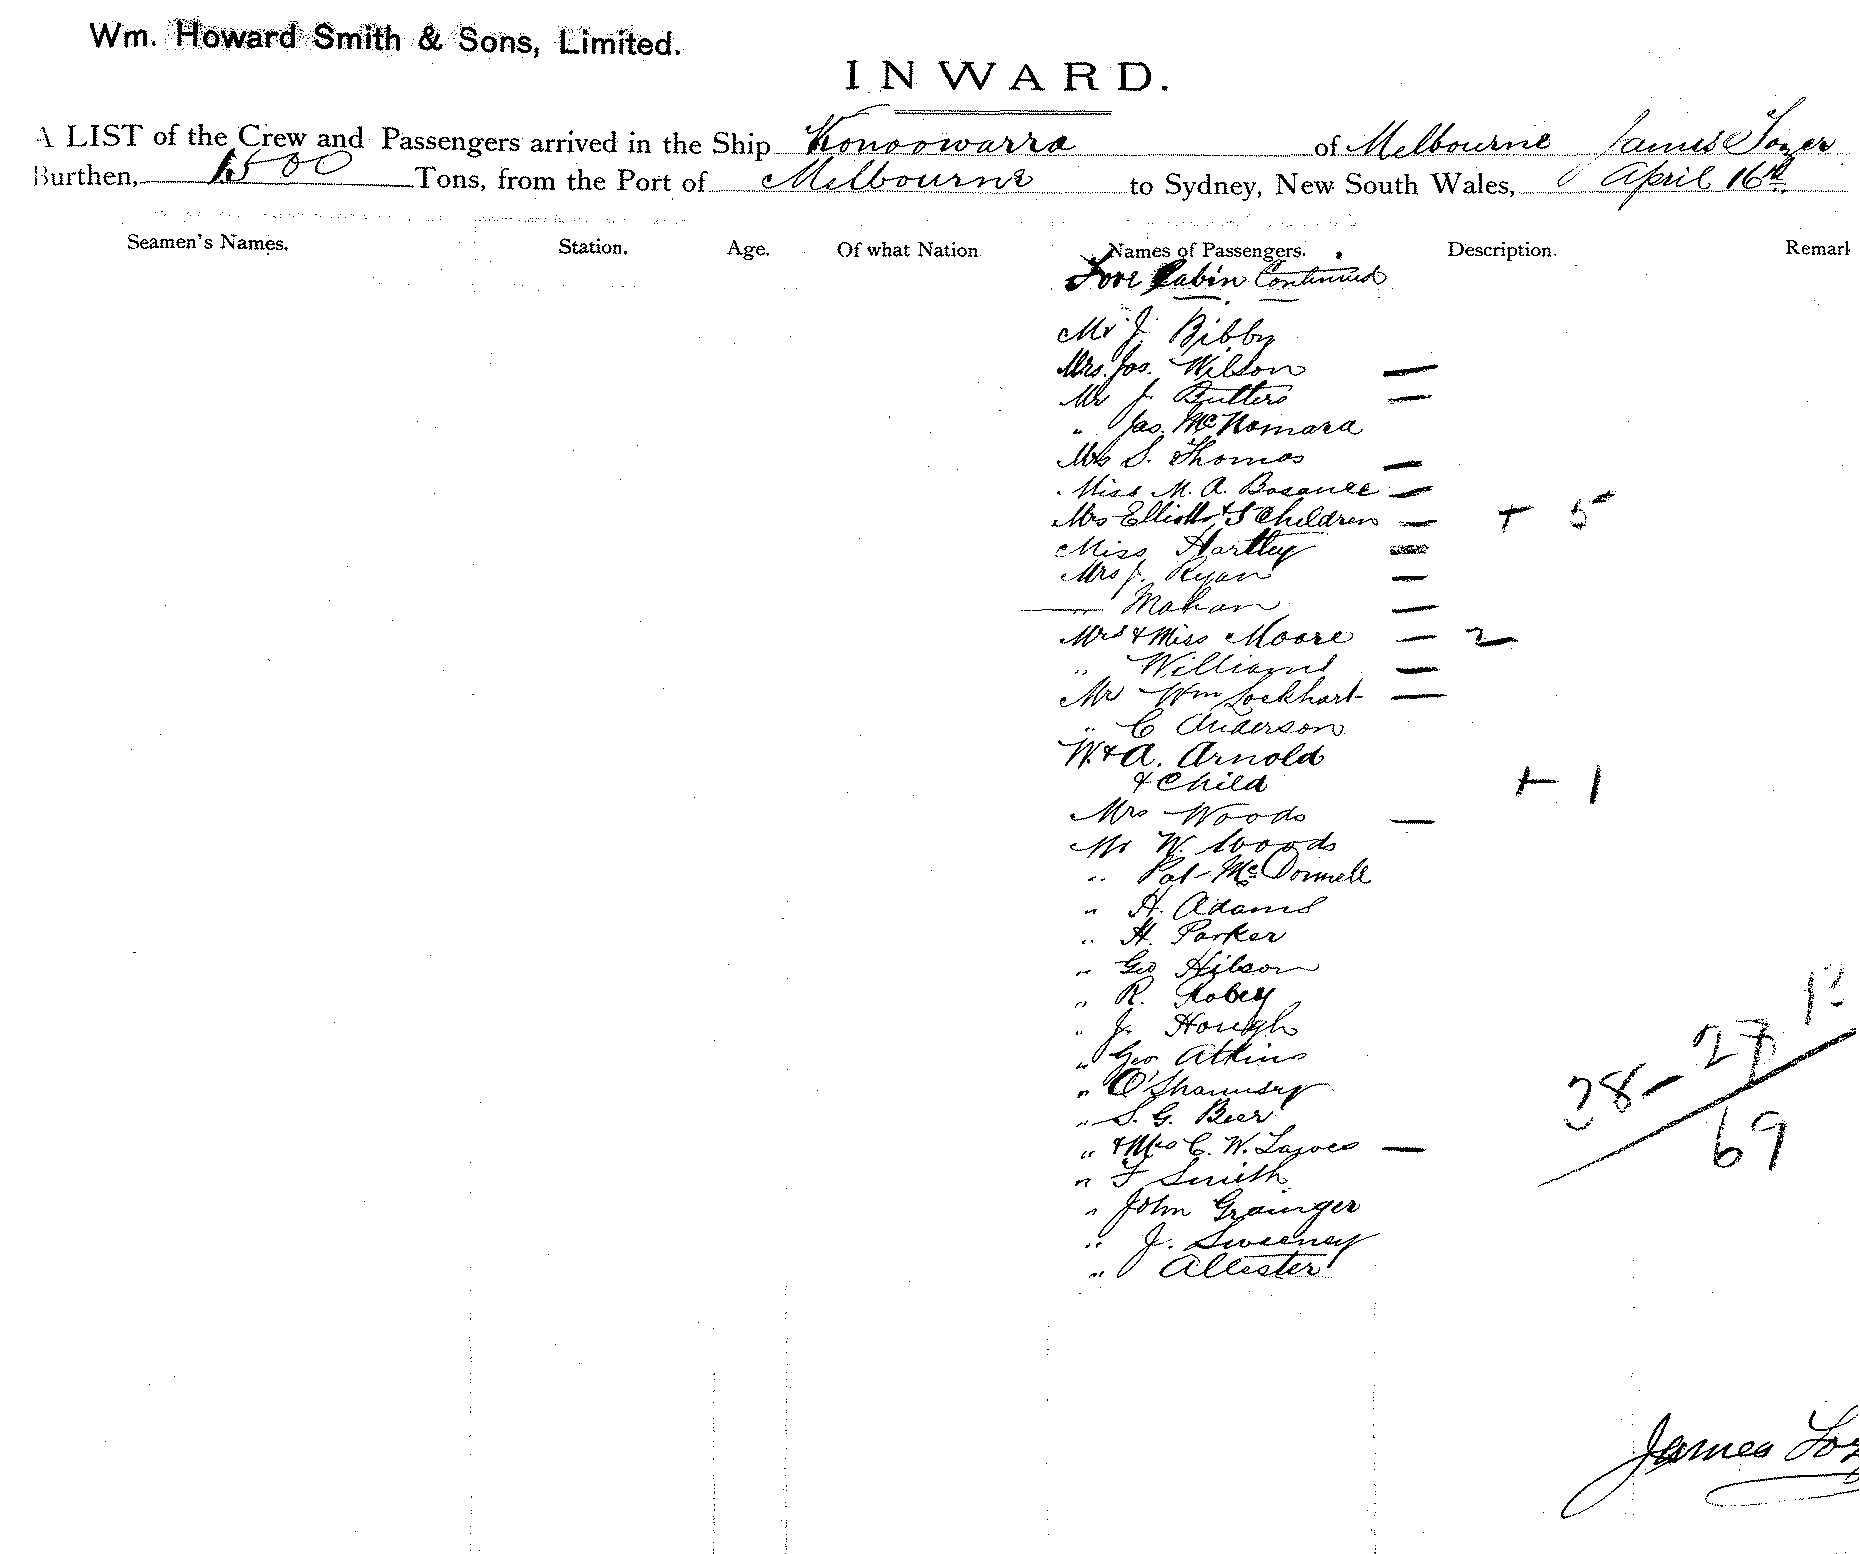 Wm. Howard Smith & Sons, Limited.
INWARD.
A LIST of the Crew and Passengers arrived in the Ship Konoowarra of Melbourne James Tozer
Burthen, 1500 Tons, from the Port of Melbourne to Sydney, New South Wales, April 16th
Seamen's Names. Station. Age. Of what Nation Names of Passengers. Description. Remark
Fore Cabin Continued
Mr J. Bibby
Mrs. Jos. Wilson —
Mr J. Butters —
" Jas. McNamara
Mrs S. Thomas —
Miss M. A. —
Mrs Elliott & 5 Children — + 5
Miss Hartley —
Mrs J. Ryan —
— Mahan —
Mrs & Miss Moore — 2
" Williams —
Mr Wm Lockhart —
" C Anderson
W. & A. Arnold
& Child + 1
Mrs Woods —
Mr W. Woods
" Pat McDonnell
" H. Adams
" H. Parker
" Geo Hilson
" R. Robey
" J. Hough
" Geo Atkins
" O'Shannesy
" S. G. Beer
" & Mrs C. W. —
" F Smith
" John Grainger
" J. Sweeney
" Allester
38 - 27
69
James Toz